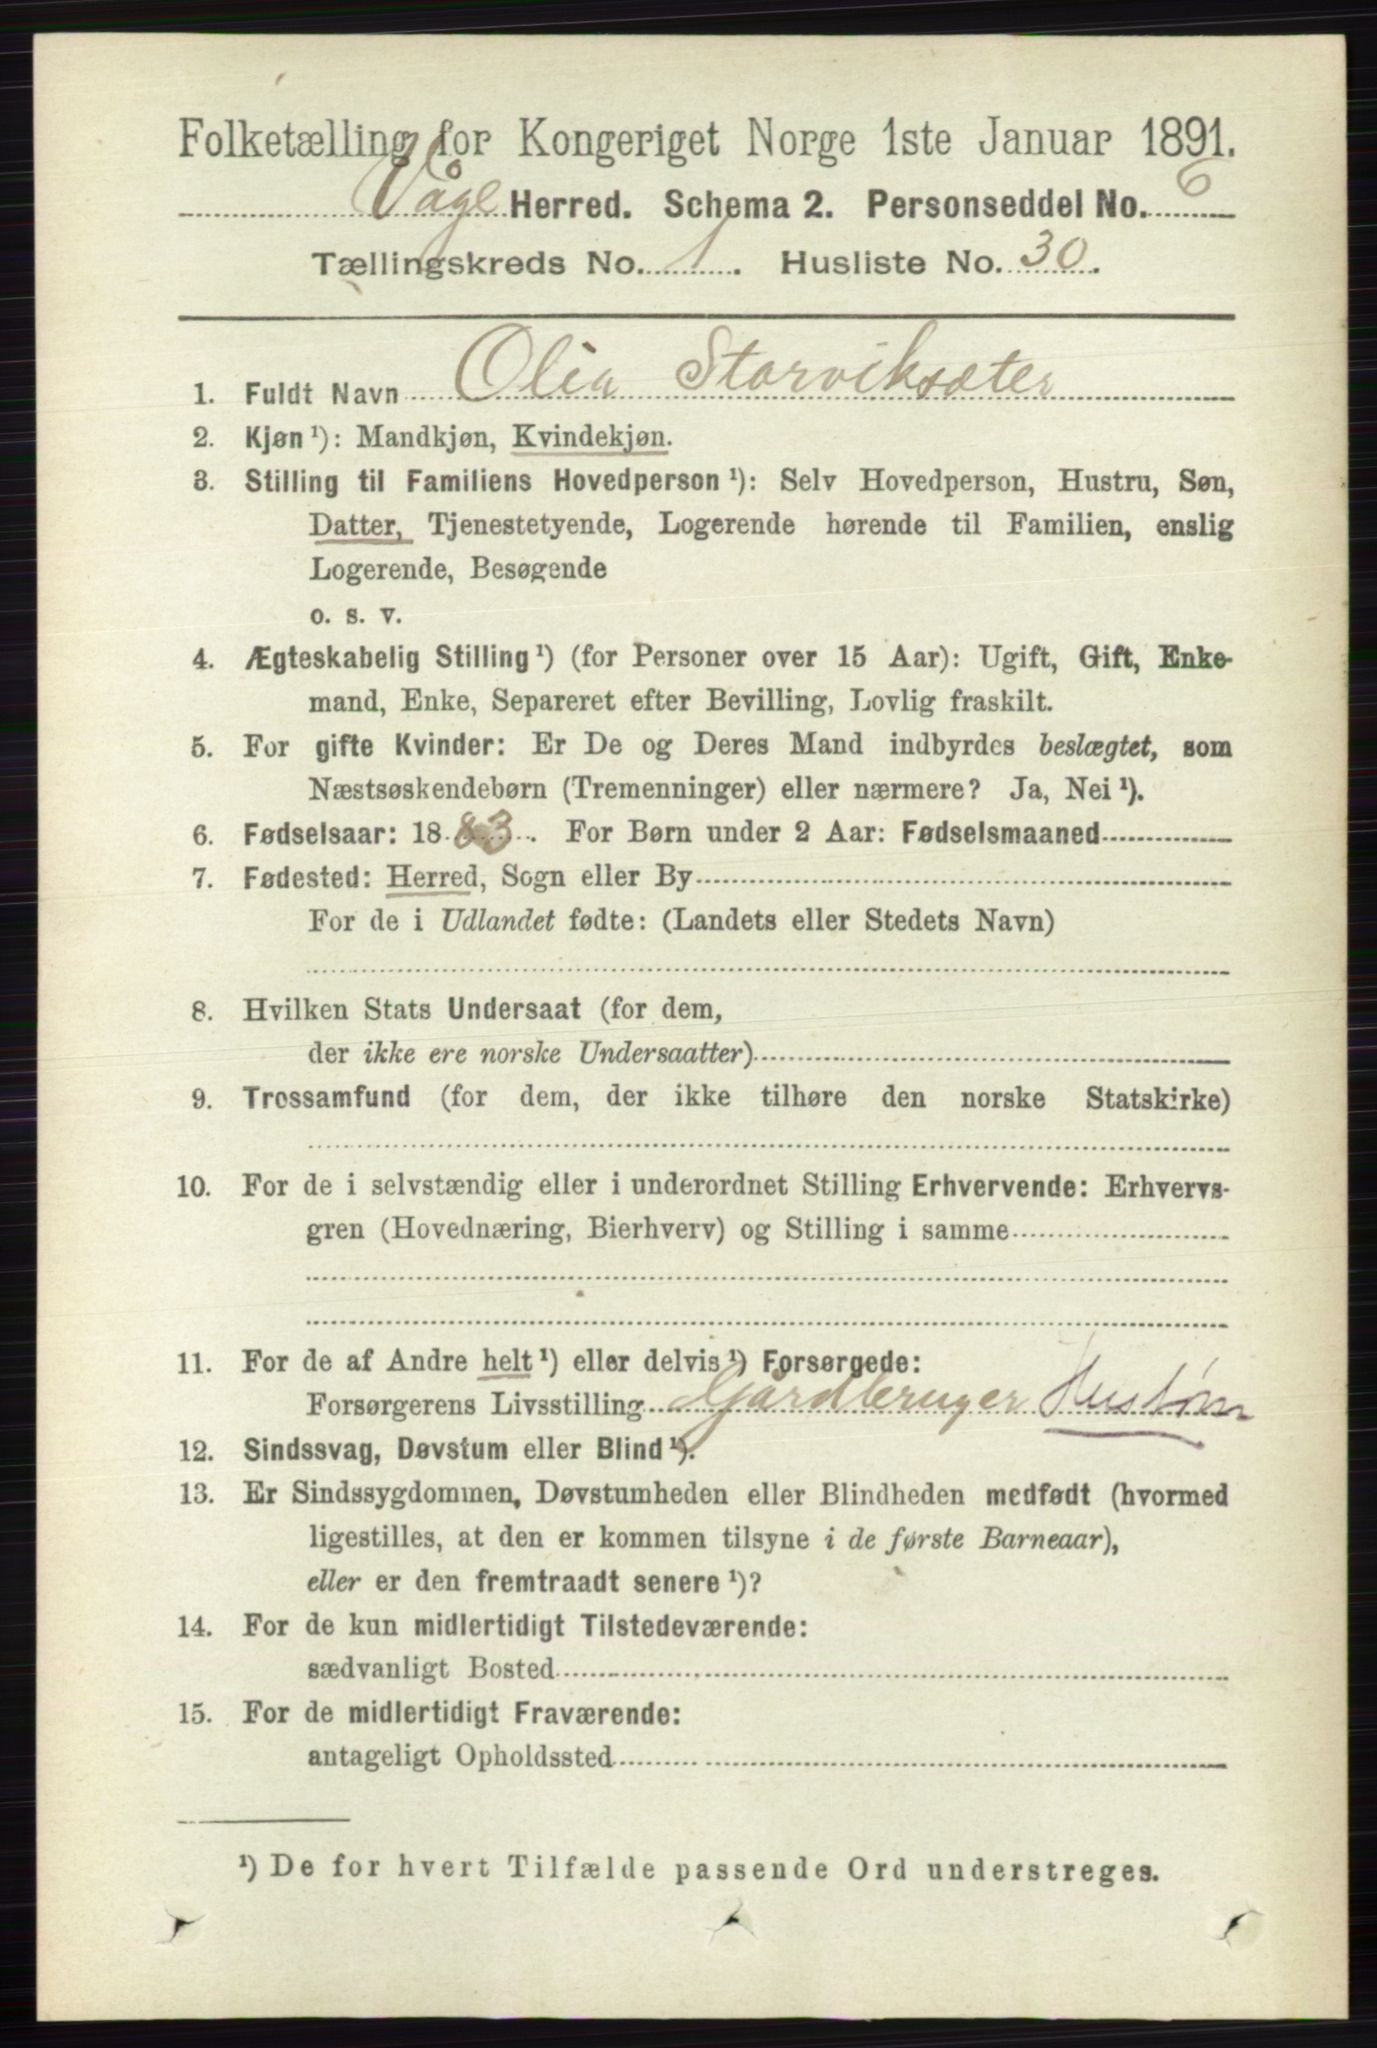 Folketælling for Kongeriget Norge 1ste Januar 1891.
Våge Herred. Schema 2. Personseddel No. 6
Tællingskreds No. 1. Husliste No. 30.
1. Fuldt Navn Olia Storviksæter
2. Kjøn ¹): Mandkjøn, Kvindekjøn.
3. Stilling til Familiens Hovedperson ¹): Selv Hovedperson, Hustru, Søn,
Datter, Tjenestetyende, Logerende hørende til Familien, enslig
Logerende, Besøgende
o. s. v.
4. Ægteskabelig Stilling ¹) (for Personer over 15 Aar): Ugift, Gift, Enke-
mand, Enke, Separeret efter Bevilling, Lovlig fraskilt.
5. For gifte Kvinder: Er De og Deres Mand indbyrdes beslægtet, som
Næstsøskendebørn (Tremenninger) eller nærmere? Ja, Nei ¹).
6. Fødselsaar: 1883. For Børn under 2 Aar: Fødselsmaaned
7. Fødested: Herred, Sogn eller By
For de i Udlandet fødte: (Landets eller Stedets Navn)
8. Hvilken Stats Undersaat (for dem,
der ikke ere norske Undersaatter)
9. Trossamfund (for dem, der ikke tilhøre den norske Statskirke)
10. For de i selvstændig eller i underordnet Stilling Erhvervende: Erhvervs-
gren (Hovednæring, Bierhverv) og Stilling i samme
11. For de af Andre helt ¹) eller delvis ¹) Forsørgede:
Forsørgerens Livsstilling Gårdbruger
12. Sindssvag, Døvstum eller Blind ¹).
13. Er Sindssygdommen, Døvstumheden eller Blindheden medfødt (hvormed
ligestilles, at den er kommen tilsyne i de første Barneaar),
eller er den fremtraadt senere ¹)?
14. For de kun midlertidigt Tilstedeværende:
sædvanligt Bosted
15. For de midlertidigt Fraværende:
antageligt Opholdssted
¹) De for hvert Tilfælde passende Ord understreges.